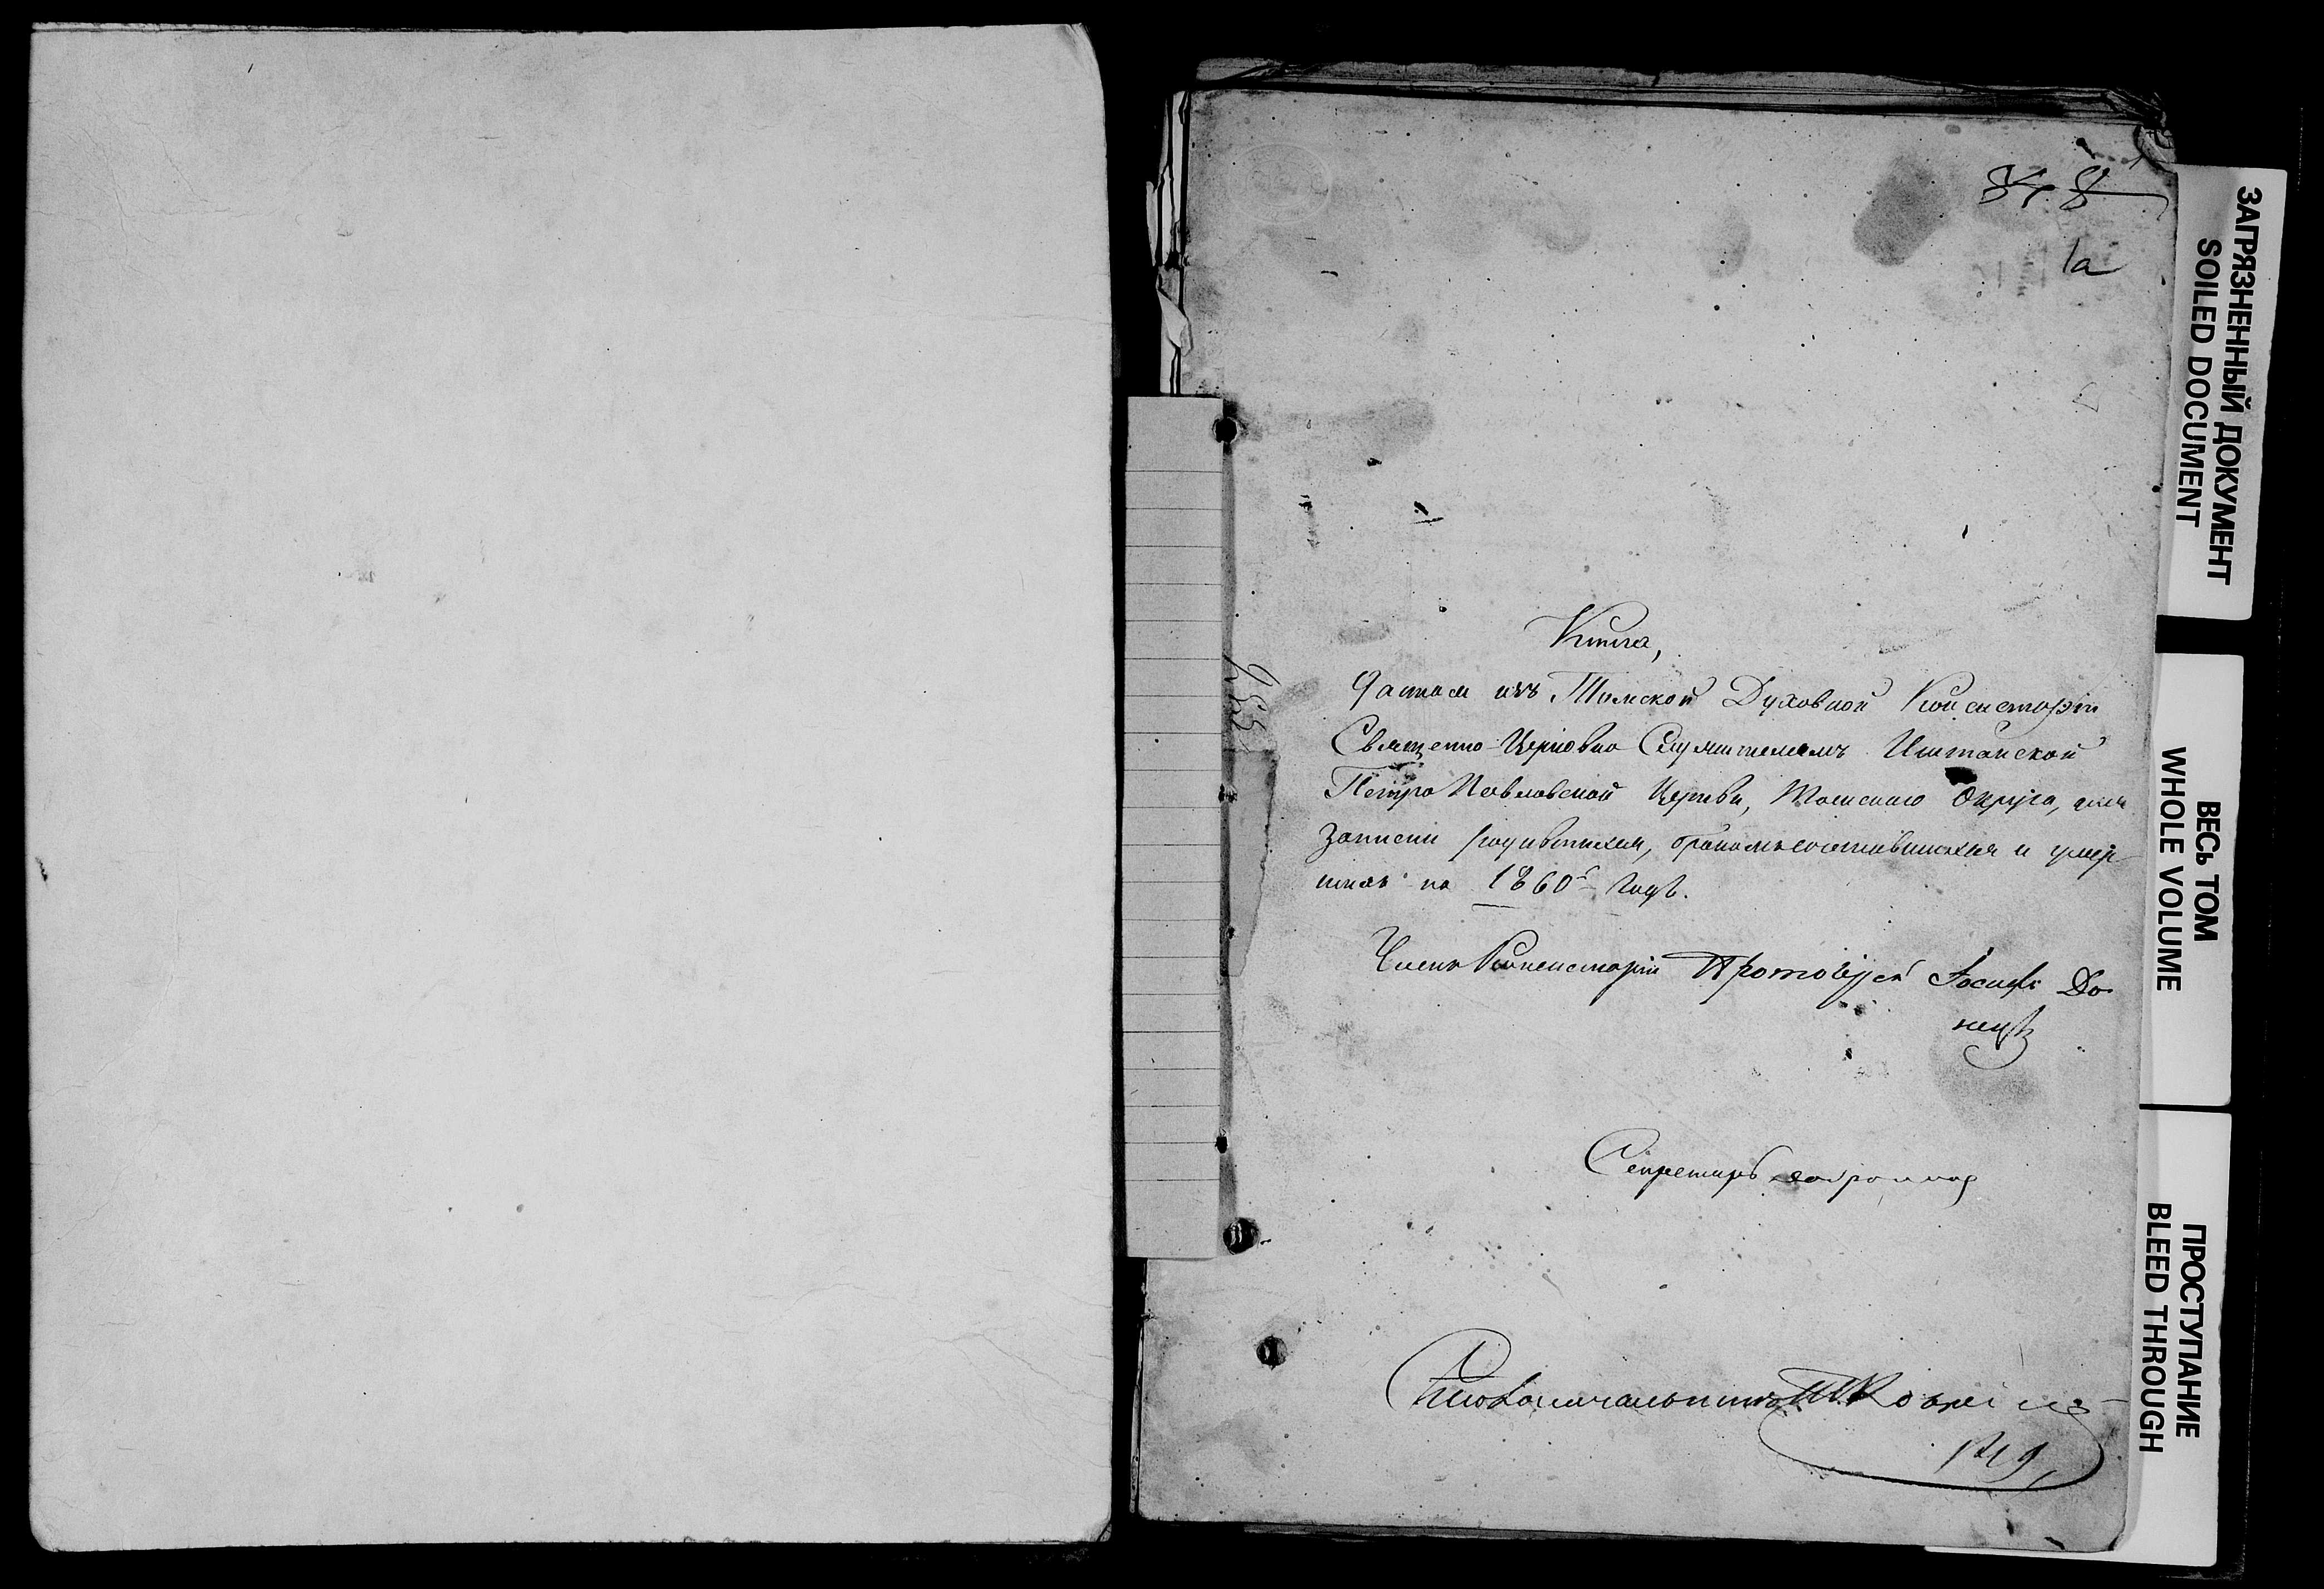 1а
Книга,
Данная изъ Томской Духовной Консисторіи
Священно-Церковно-Служителямъ Иштанской
Петро Павловской Церкви, Томскаго Округа, для
записки родившихся, бракомъ сочетавшихся и умер-
шихъ на 1860й годъ.
Членъ Консисторіи Протоіерей Іосифъ До-
нецъ
Секретарь
Столоначальникъ
ЗАГРЯЗНЕННЫЙ ДОКУМЕНТ
SOILED DOCUMENT
ВЕСЬ ТОМ
WHOLE VOLUME
ПРОСТУПАНИЕ
BLEED THROUGH